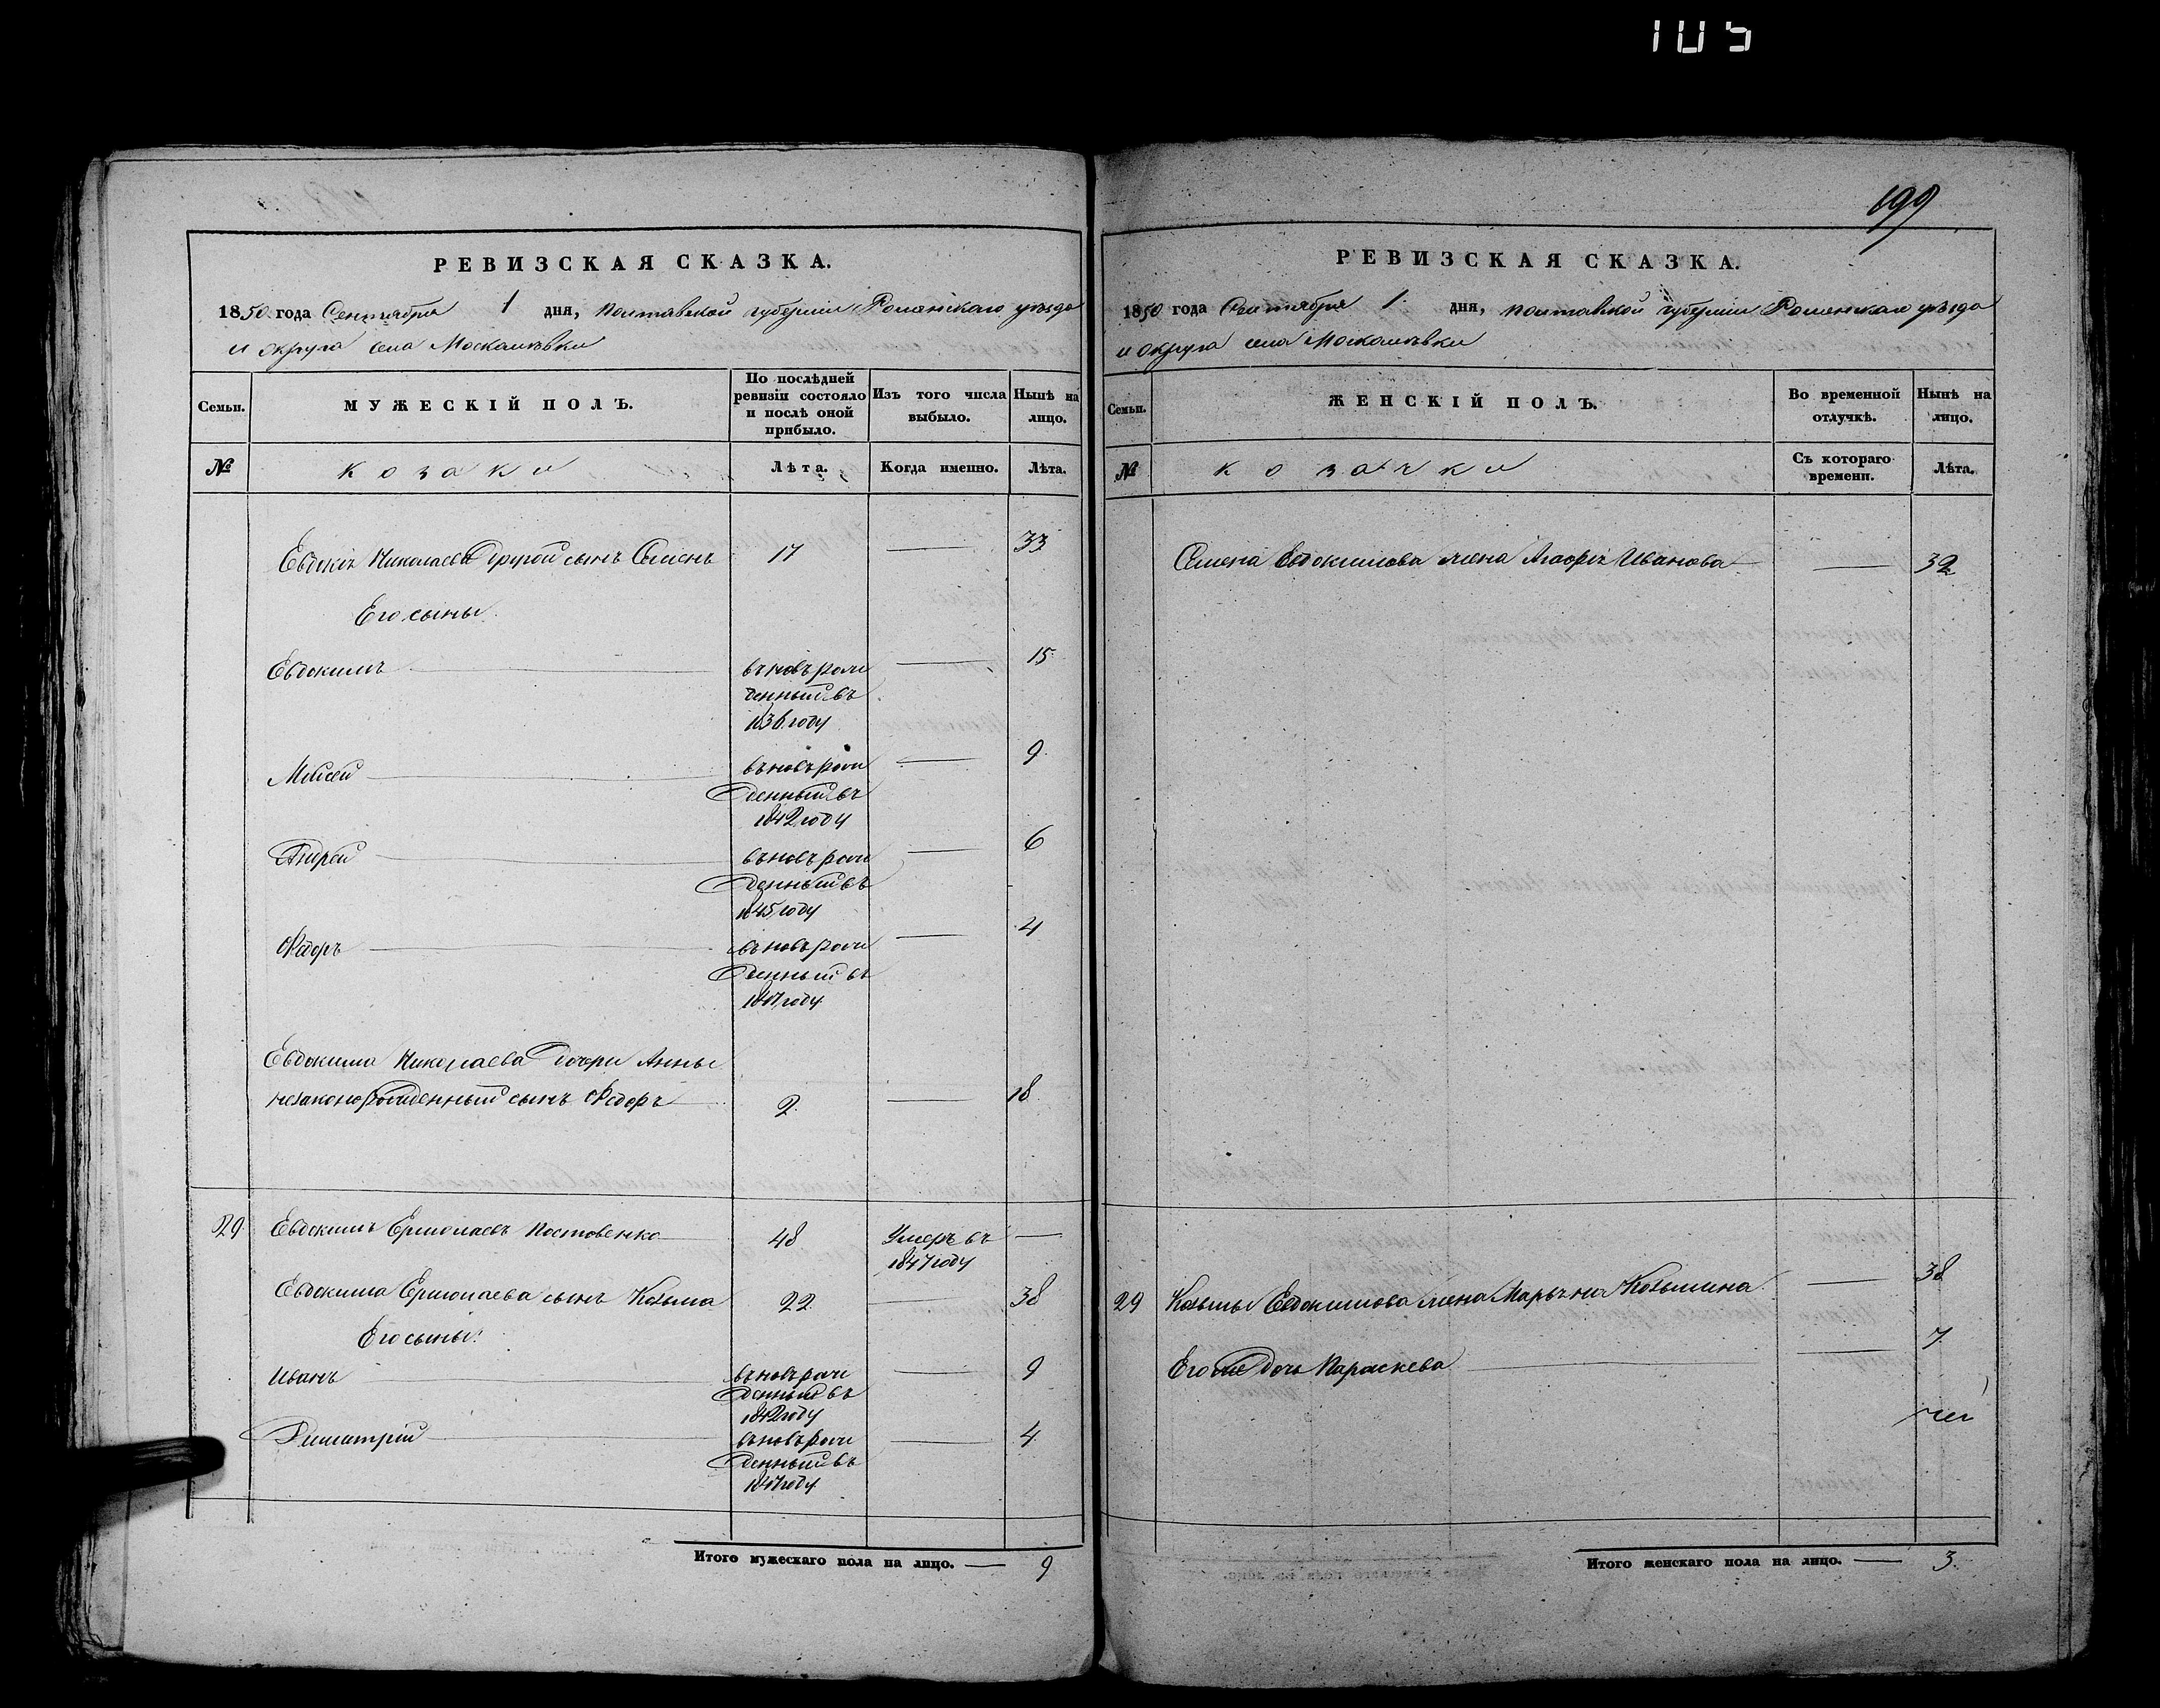 105
РЕВИЗСКАЯ СКАЗКА.
1850 года Сентября 1 дня, полтавской губерніи Роменскаго уѣзда
и округа села Москалѣвки
Семьи. МУЖЕСКІЙ ПОЛЪ. По послѣдней ревизіи состояло и послѣ оной прибыло. Изъ того числа выбыло. Нынѣ на лицо.
№ козаки Лѣта. Когда именно. Лѣта.
Николаева другой сынъ Семенъ 17 — 33
Его сыны
Евдокимъ въновь рож — 15
денный въ
1836 году
Мойсей въновь рож — 9
денный въ
1842 году
Андрей въновь рож — 6
денный въ
1845 году
Федоръ въновь рож — 4
денный въ
1847 году
Евдокима Николаева дочери Анны
незаконорожденный сынъ Федоръ 2 — 18
29 Евдокимъ Ермолаевъ Постовенко 48 Умеръ въ —
1847 году
Евдокима Ермолаева сынъ Козьма 22 — 38
Его сыны:
Иванъ въновь рож — 9
денный въ
1842 году
Димитрій въновь рож — 4
денный въ
1847 году
Итого мужескаго пола на лицо. — 9
199
РЕВИЗСКАЯ СКАЗКА.
1850 года Сентября 1 дня, полтавской губерніи Роменскаго уѣзда
и округа села Москалѣвки
Семьи. ЖЕНСКІЙ ПОЛЪ. Во временной отлучкѣ. Нынѣ на лицо.
№ козачки Съ котораго времени. Лѣта.
Семена Евдокимова жена Иванова — 32
29 Козьмы Евдокимова жена Марьяна Козьмина — 38
Его же дочь Параскева — 7
Итого женскаго пола на лицо. — 3.